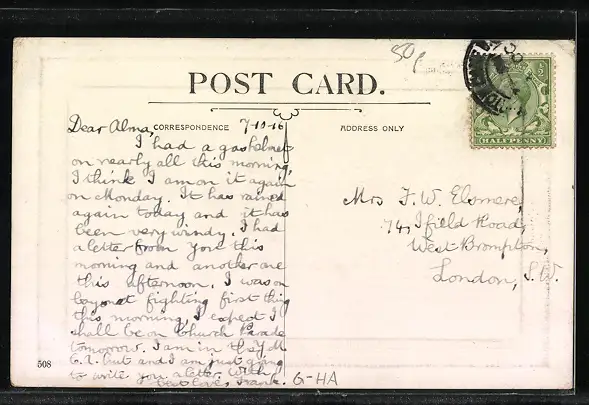 50p
POST CARD.
CORRESPONDENCE
ADDRESS ONLY
Dear Alma, 7-10-16
I had a gashelmet
on nearly all this morning,
I think I am on it again
on Monday. It has rained
again today and it has
been very windy. I had
a letter from you this
morning and another one
this afternoon. I was on
bayonet fighting first thing
this morning. I expect I
shall be on Church Parade
tomorrow. I am in the Y.M
C.A. hut and I am just going
to write you a letter. With
best love, Frank.
G-HA
Mrs F. W. Elsmere,
74, Ifield Road,
West Brompton,
London, S.W.
HALFPENNY
508